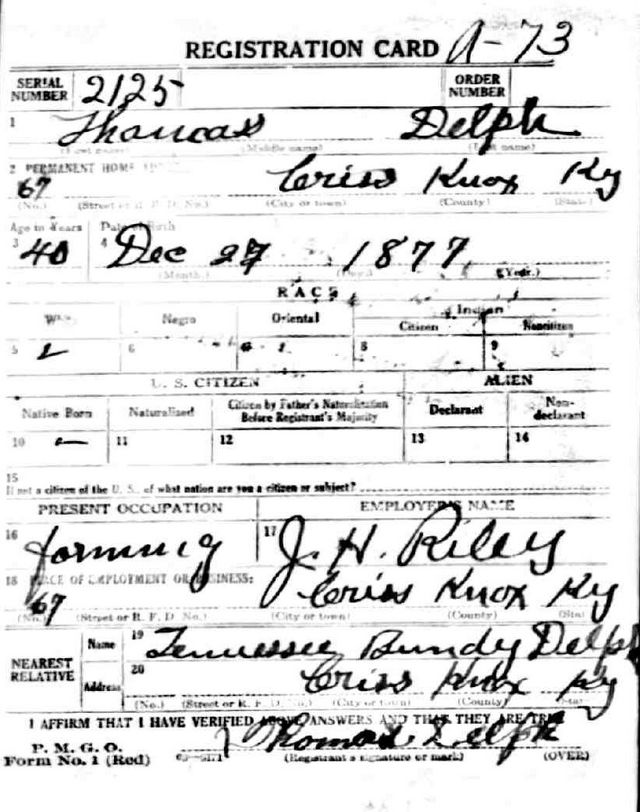 REGISTRATION CARD A-73
SERIAL NUMBER 2125 ORDER NUMBER
1 Thomas Delph
(First name) (Middle name) (Last name)
2 PERMANENT HOME
67 Criss Knox Ky
(No.) (Street or R. F. D. No.) (City or town) (County) (State)
Age in Years Date of Birth
3 40 4 Dec 27 1877
(Month.) (Day.) (Year.)
RACE
White Negro Oriental Indian
Citizen Noncitizen
5 6 7 8 9
U. S. CITIZEN ALIEN
Native Born Naturalized Citizen by Father's Naturalization Before Registrant's Majority Declarant Non-declarant
10 11 12 13 14
15
If not a citizen of the U. S., of what nation are you a citizen or subject?
PRESENT OCCUPATION EMPLOYER'S NAME
16 farming 17 J. H. Riley
18 PLACE OF EMPLOYMENT OR BUSINESS:
67 Criss Knox Ky
(No.) (Street or R. F. D. No.) (City or town) (County) (State)
NEAREST RELATIVE Name 19 Tennessee Bundy Delph
Address 20 Criss Knox Ky
(No.) (Street or R. F. D. No.) (City or town) (County) (State)
I AFFIRM THAT I HAVE VERIFIED ABOVE ANSWERS AND THAT THEY ARE TRUE
P. M. G. O.
Form No. 1 (Red) Thomas Delph
(Registrant's signature or mark) (OVER)